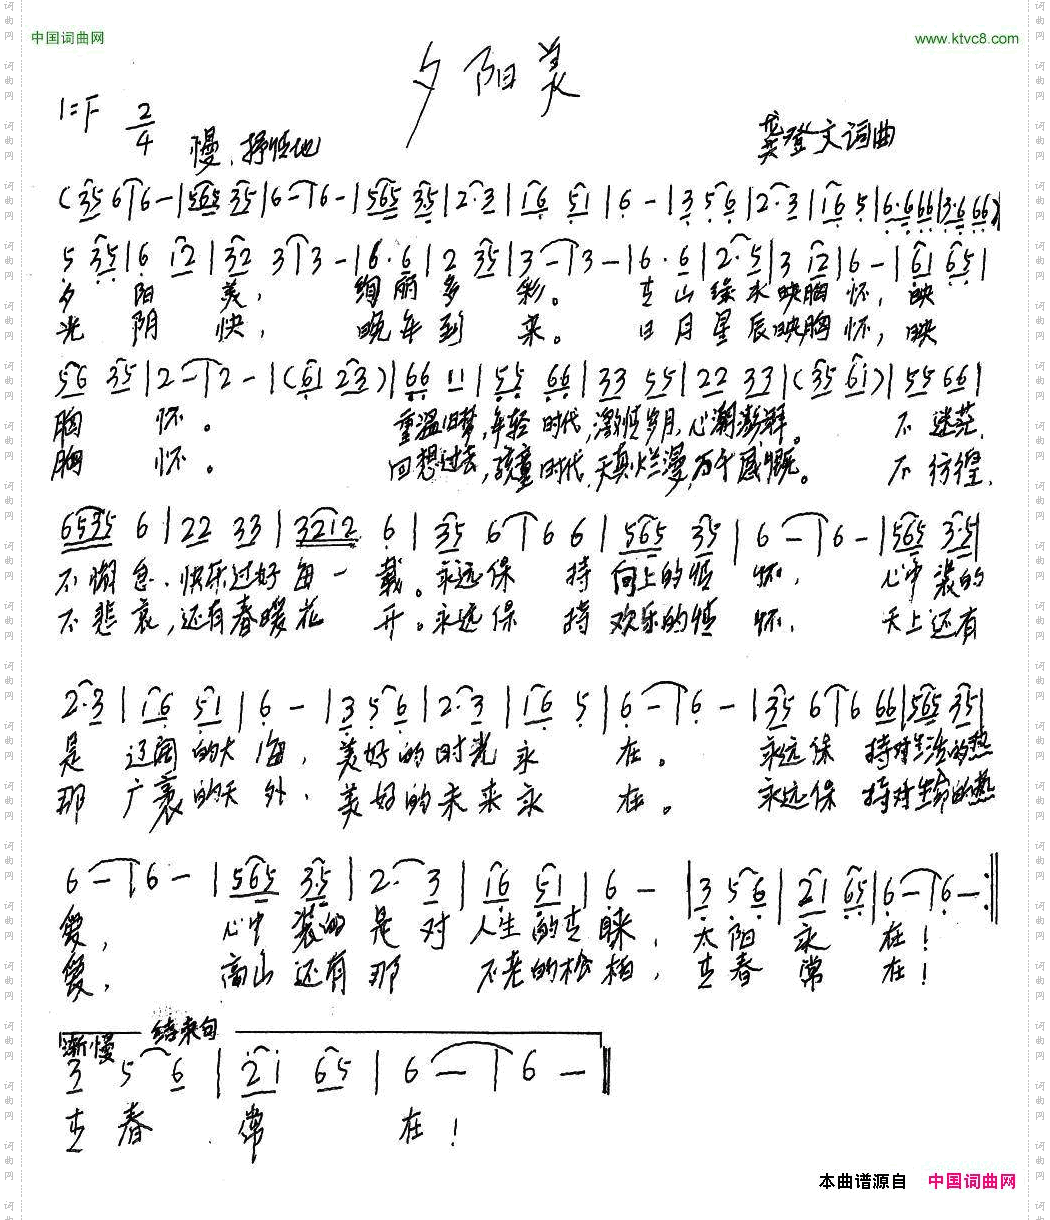 中国词曲网
www.ktvc8.com
夕阳美
1=F 2/4
慢、抒情地
龚登文词曲
(35 6 | 6 - | 565 35 | 6 - | 6 - | 565 35 | 2·3 | 16 51 | 6 - | 3 56 | 2·3 | 16 5 | 6·666 | 3·6 66)
5 35 | 6 12 | 32 3 | 3 - | 6·6 | 2 35 | 3 - | 3 - | 6·6 | 2·5 | 3 12 | 6 - | 61 65 |
夕阳美，绚丽多彩。青山绿水映胸怀，映
光阴快，晚年到来。日月星辰映胸怀，映
56 35 | 2 - | 2 - | (61 23) | 66 11 | 55 66 | 33 55 | 22 33 | (35 61) | 55 66 |
胸怀。重温旧梦，年轻时代，激情岁月，心潮澎湃。不迷茫，
胸怀。回想过去，孩童时代，天真烂漫，万千感慨。不彷徨，
6535 6 | 22 33 | 3212 6 | 35 6 | 6 6 | 565 35 | 6 - | 6 - | 565 3·5 |
不懈怠、快乐过好每一载。永远保持向上的情怀，心中装的
不悲哀，还有春暖花开。永远保持欢乐的情怀，天上还有
2·3 | 16 51 | 6 - | 3 56 | 2·3 | 16 5 | 6 - | 6 - | 35 6 | 6 66 | 565 35 |
是辽阔的大海，美好的时光永在。永远保持对生活的热
那广袤的天外，美好的未来永在。永远保持对生命的热
6 - | 6 - | 565 3·5 | 2· 3 | 16 51 | 6 - | 3 56 | 21 65 | 6 - | 6 - :||
爱，心中装的是对人生的青睐，太阳永在！
爱，高山还有那不老的松柏，青春常在！
渐慢 结束句
3 5 6 | 2 1 65 | 6 - | 6 - ||
青春常在！
本曲谱源自 中国词曲网